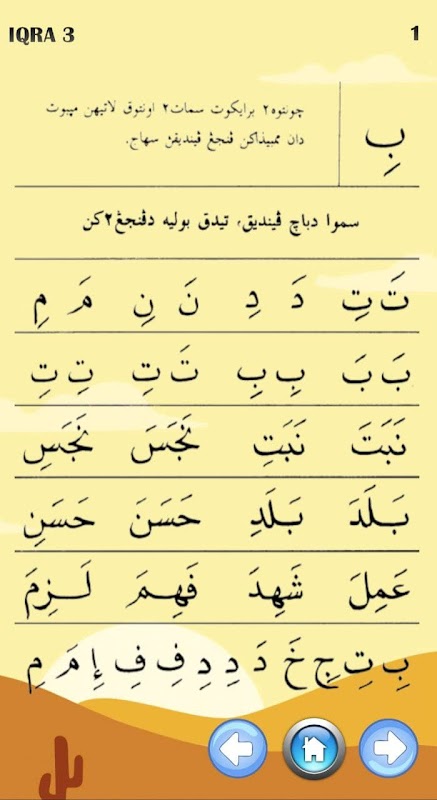 IQRA 3
1
بِ
چونتوه٢ برايكوت سمات٢ اونتوق لاتيهن مڽبوت
دان ممبيذاكن ڤنجڠ ڤينديقن سهاج.
سموا دباچ ڤينديق، تيدق بوليه دڤنجڠ٢كن
تَ تِ دَ دِ نَ نِ مَ مِ
بَ بَ بِ بِ تَ تِ تِ تِ
نَبَتَ نَبَتِ نَجَسَ نَجَسِ
بَلَدَ بَلَدِ حَسَنَ حَسَنِ
عَمِلَ شَهِدَ فَهِمَ لَزِمَ
بِ تِ جِ خَ دَ دِ دِ فِ فِ إِ مَ مِ